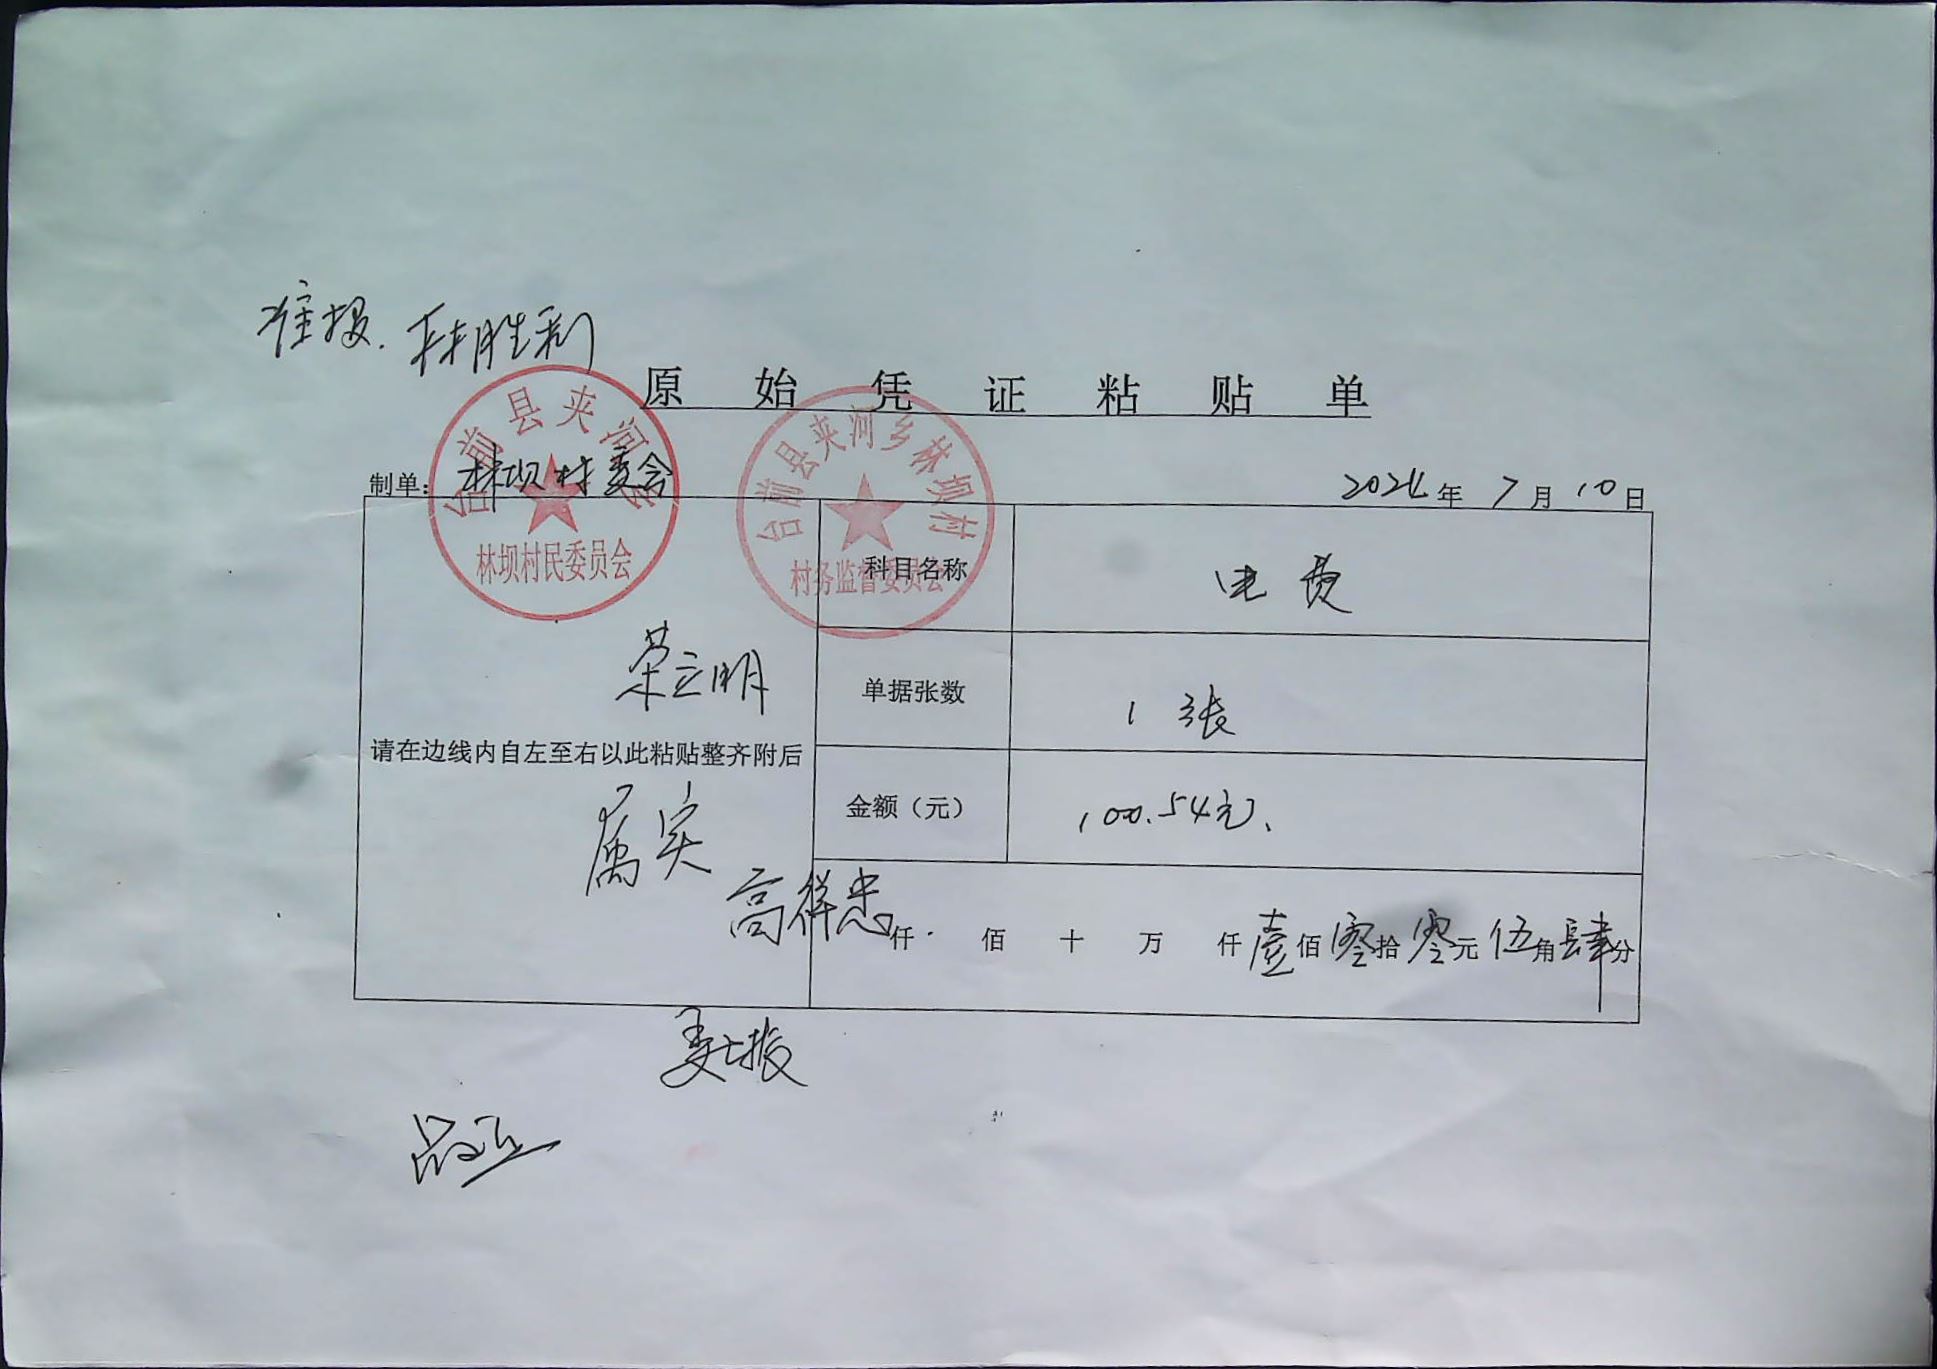 准报. 林胜利
原始凭证粘贴单
台前县夹河乡
林坝村民委员会
台前县夹河乡林坝村
村务监督委员会
制单：林坝村委会
2024年7月10日
科目名称 电费
荣立明
单据张数 1张
请在边线内自左至右以此粘贴整齐附后
金额（元） 100.54元、
属实
高祥忠
仟 佰 十 万 仟壹佰零拾零元伍角肆分